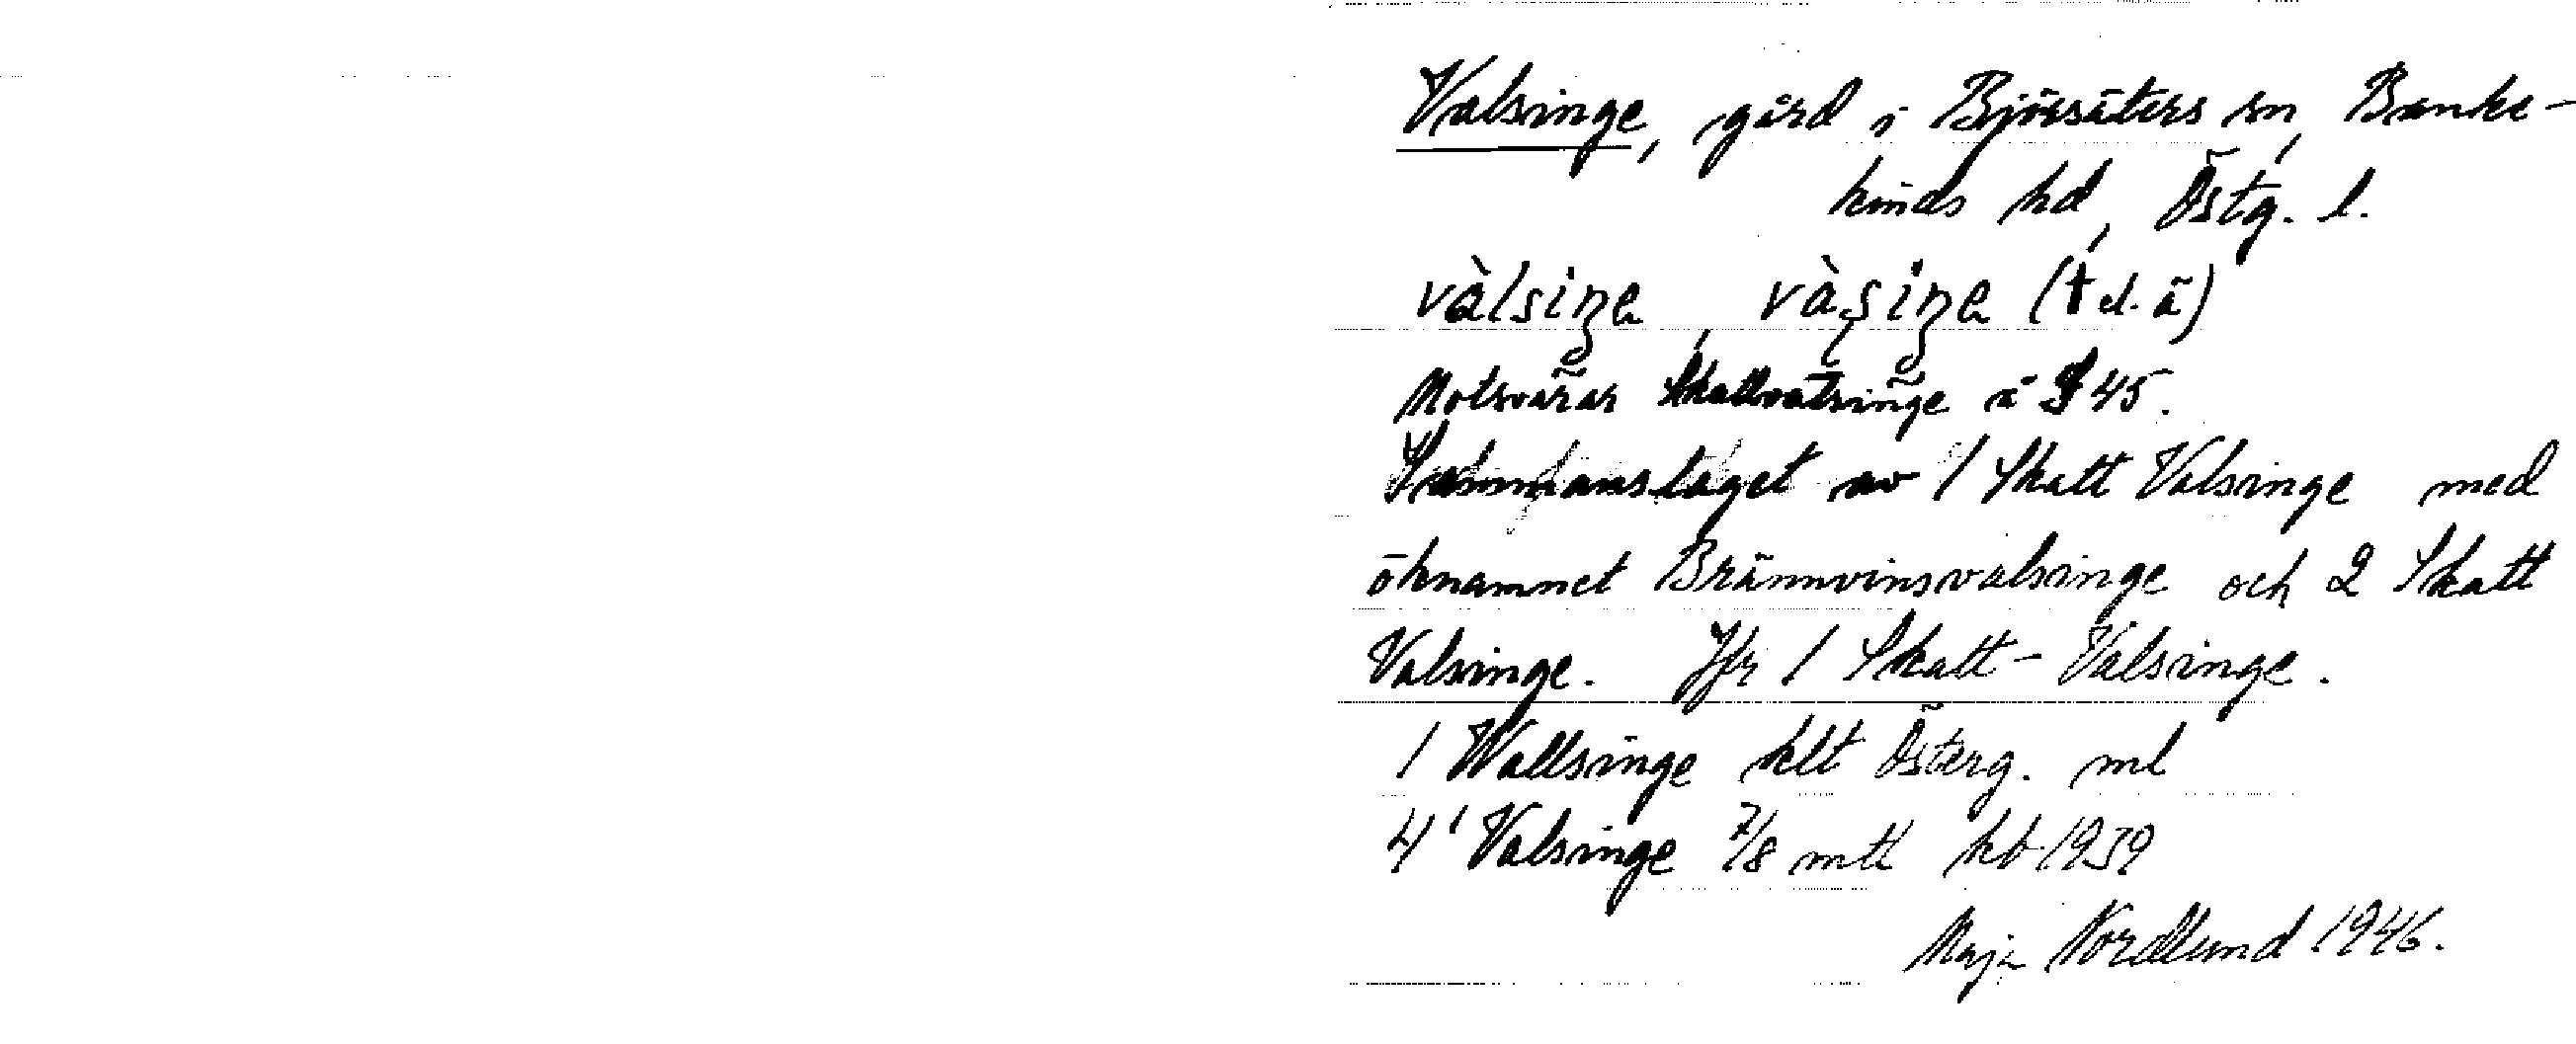 Valsinge, gård i Björsäters sn, Banke-
kinds hd, Östg. l.
vàlsiŋe, vàʂiŋe (t d. ä)
Motsvarar Skattvalsinge å § 45.
Sammanslaget av 1 Skatt Valsinge med
öknamnet Brännvinsvalsinge och 2 Skatt
Valsinge. Jfr 1 Skatt-Valsinge.
1 Wallsinge hlt Österg. ml
4¹ Valsinge 7/8 mtl kb 1939
Maja Nordlund 1946.